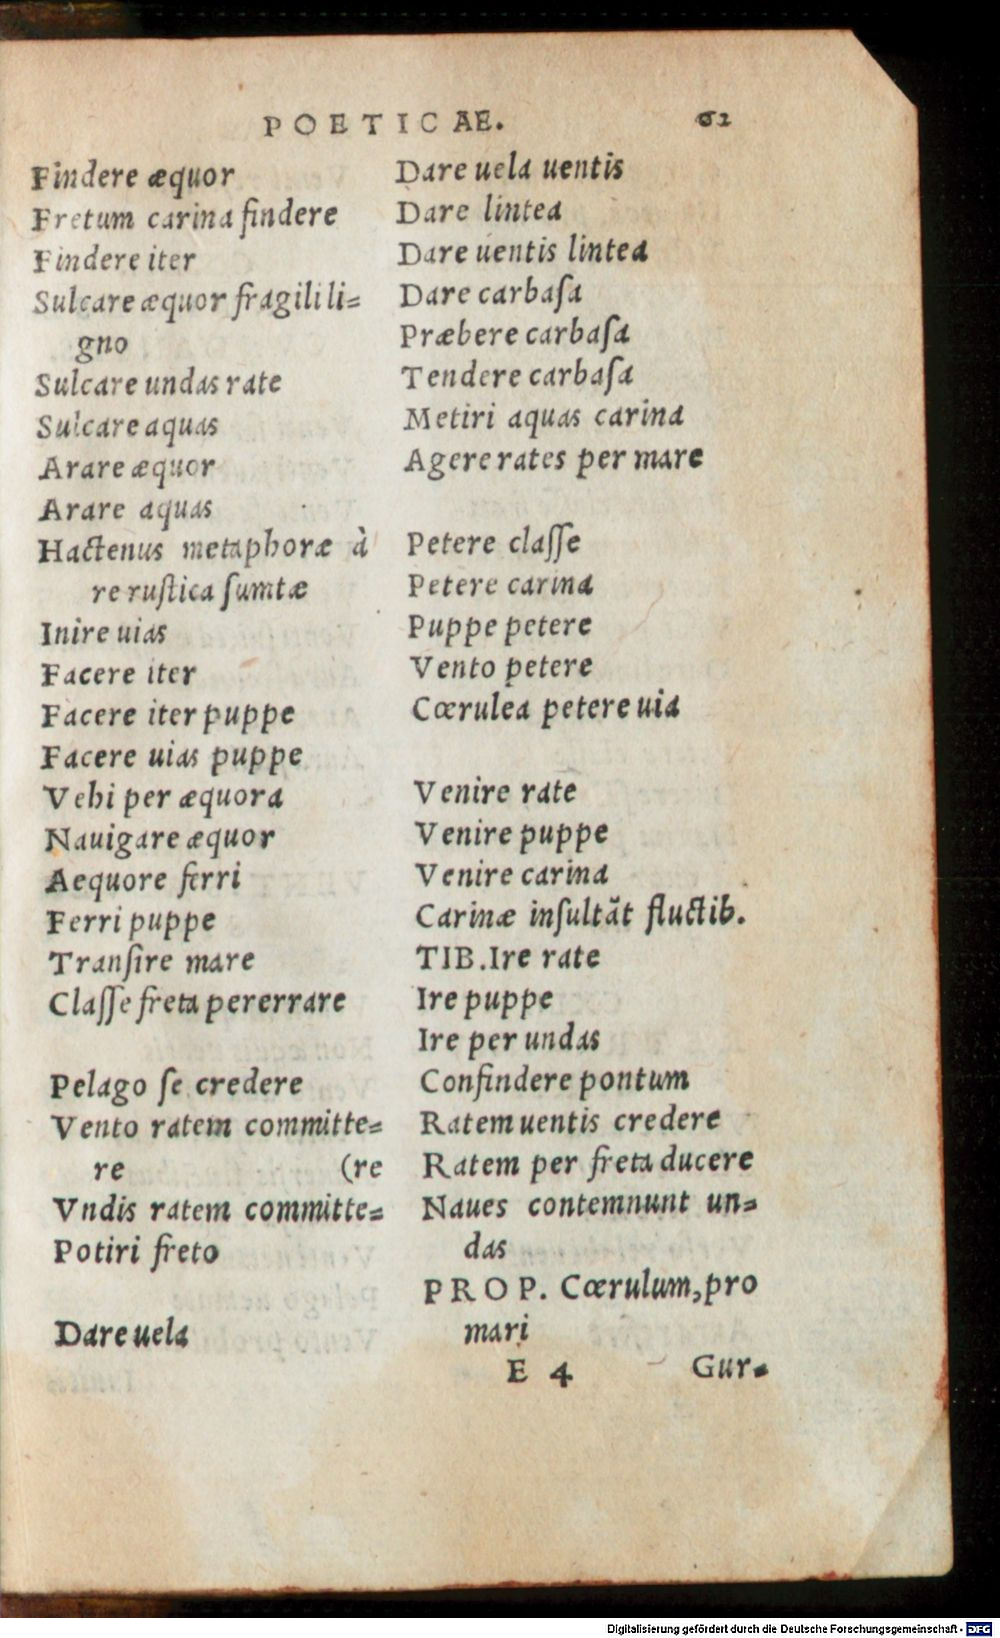 POETICAE. 62
Findere æquor
Fretum carina findere
Findere iter
Sulcare æquor fragili li=
gno
Sulcare undas rate
Sulcare aquas
Arare æquor
Arare aquas
Hactenus metaphoræ à
re rustica sumtæ
Inire uias
Facere iter
Facere iter puppe
Facere uias puppe
Vehi per æquora
Nauigare æquor
Aequore ferri
Ferri puppe
Transire mare
Classe freta pererrare
Pelago se credere
Vento ratem committe=
re (re
Vndis ratem committe=
Potiri freto
Dare uela
Dare uela uentis
Dare lintea
Dare uentis lintea
Dare carbasa
Præbere carbasa
Tendere carbasa
Metiri aquas carina
Agere rates per mare
Petere classe
Petere carina
Puppe petere
Vento petere
Cœrulea petere uia
Venire rate
Venire puppe
Venire carina
Carinæ insultãt fluctib.
TIB. Ire rate
Ire puppe
Ire per undas
Confindere pontum
Ratem uentis credere
Ratem per freta ducere
Naues contemnunt un=
das
PROP. Cœrulum, pro
mari
E 4 Gur=
Digitalisierung gefördert durch die Deutsche Forschungsgemeinschaft - DFG